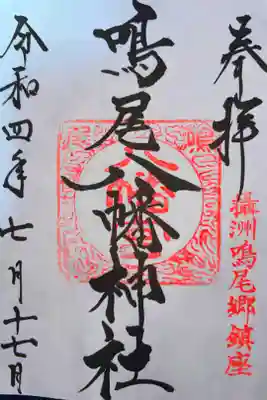 奉拝
摂州鳴尾郷鎮座
鳴尾八幡神社
令和四年七月十七日